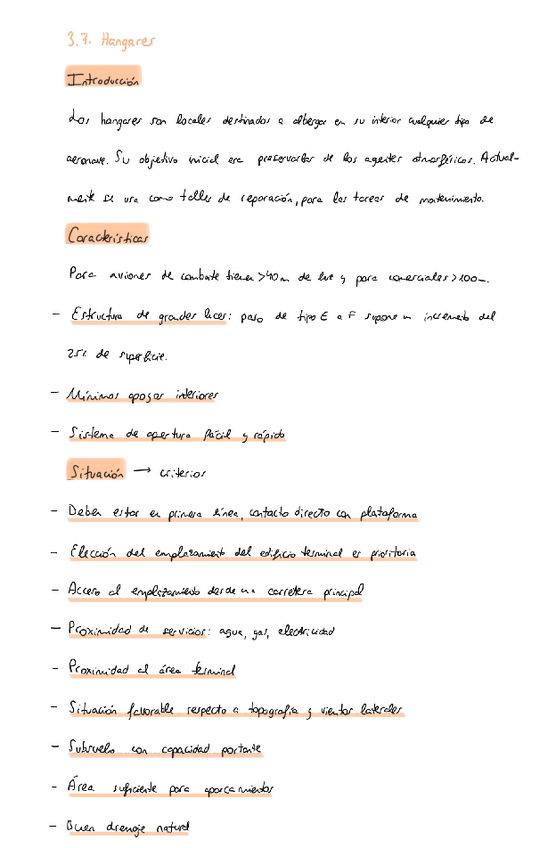 3.7. Hangares
Introducción
Los hangares son locales destinados a albergar en su interior cualquier tipo de
aeronave. Su objetivo inicial era preservarlas de los agentes atmosféricos. Actual-
mente se usa como taller de reparación, para las tareas de mantenimiento.
Características
Para aviones de combate tienen >40m de luz y para comerciales >100m.
- Estructura de grandes luces: paso de tipo E a F supone un incremento del
25% de superficie.
- Mínimos apoyos interiores
- Sistema de apertura fácil y rápido
Situación → criterios
- Deben estar en primera línea, contacto directo con plataforma
- Elección del emplazamiento del edificio terminal es prioritaria
- Acceso al emplazamiento desde una carretera principal
- Proximidad de servicios: agua, gas, electricidad
- Proximidad al área terminal
- Situación favorable respecto a topografía y vientos laterales
- Subsuelo con capacidad portante
- Área suficiente para aparcamientos
- Buen drenaje natural